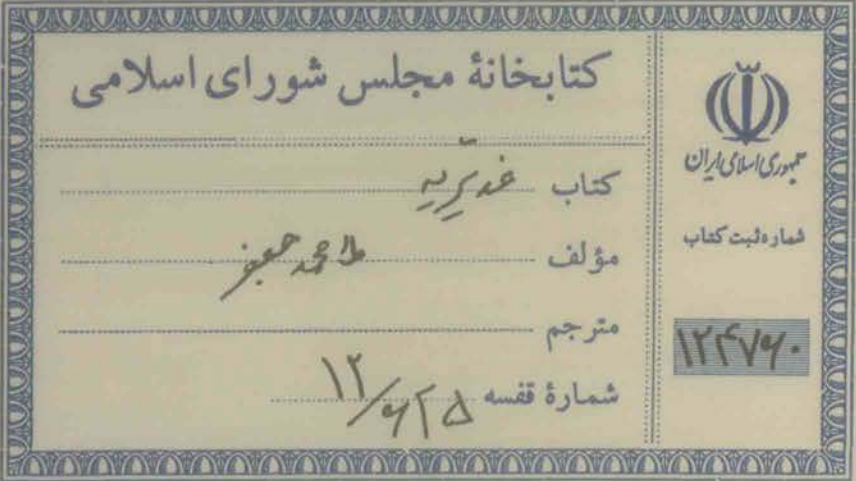 کتابخانهٔ مجلس شورای اسلامی
کتاب غدیریه
مؤلف ملا محمد جعفر
مترجم
شمارهٔ قفسه ۱۲/۶۲۵
جمهوری اسلامی ایران
شماره ثبت کتاب
۱۲۴۷۶۰